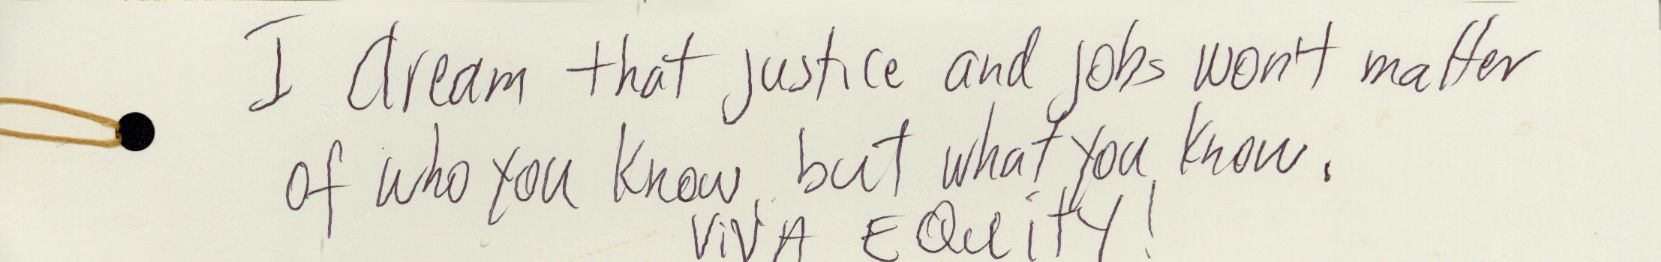 I dream that justice and jobs won't matter
of who you know, but what you know.
ViVA EQUiTY!